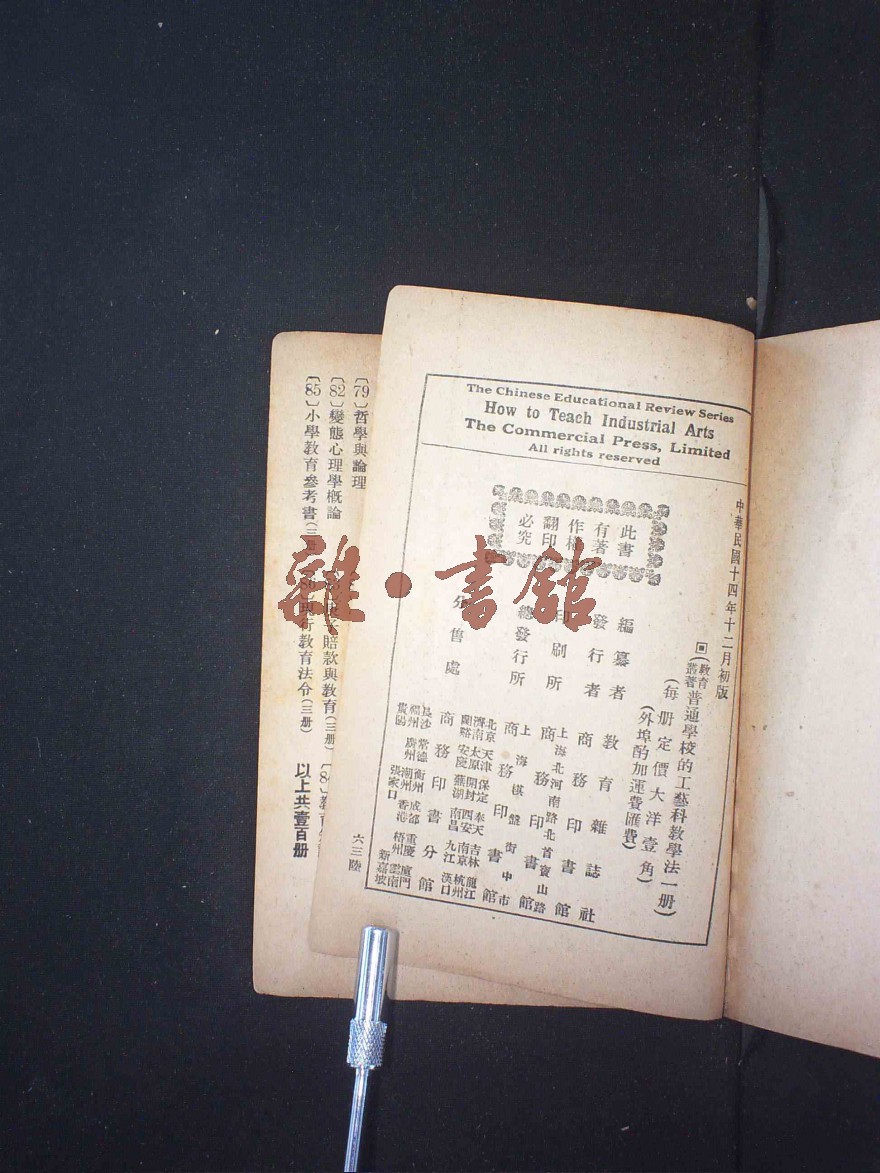 The Chinese Educational Review Series
How to Teach Industrial Arts
The Commercial Press, Limited
All rights reserved
中華民國十四年十二月初版
教育叢著
普通學校的工藝科教學法一册
每册定價大洋壹角
外埠酌加運費匯費
此書
有著
作權
翻印
必究
編纂者 教育雜誌社
發行者 商務印書館
印刷所 上海北河南路北首寶山路 商務印書館
總發行所 上海棋盤街中市 商務印書館
分售處 商務印書分館
北京 天津 保定 奉天 吉林 龍江
濟南 太原 開封 西安 南京 杭州
安慶 蕪湖 南昌 九江 漢口
長沙 常德 衡州 成都 重慶 廈門
福州 廣州 潮州 香港 梧州 雲南
張家口 新嘉坡
六三陸
〔79〕哲學與論理
〔82〕變態心理學概論
賠款與教育(三册)
〔85〕小學教育參考書(三册
現行教育法令(三册)
以上共壹百册
雜·書館